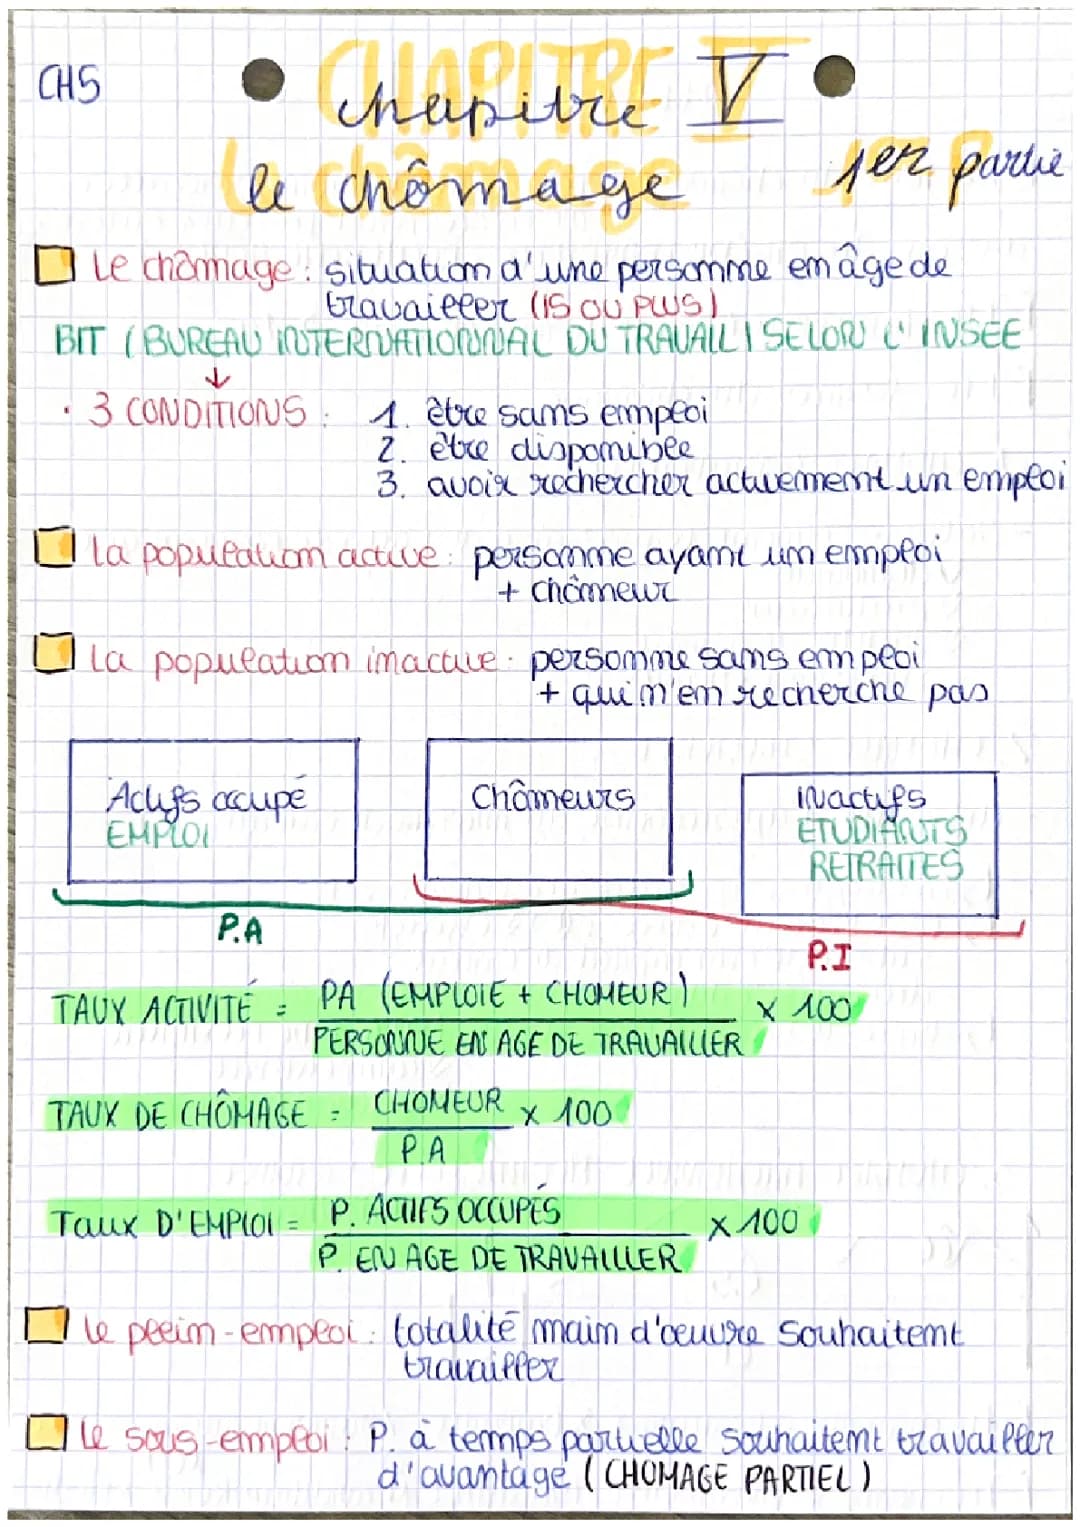 CH5
CHAPITRE V
chapitre V
le chômage
le chômage
1er partie
Le chômage : situation d'une personne en âge de
travailler (15 OU PLUS)
BIT (BUREAU INTERNATIONNAL DU TRAVAIL) SELON L'INSEE
↓
• 3 CONDITIONS : 1. être sans emploi
2. être disponible
3. avoir rechercher activement un emploi
La population active : personne ayant un emploi
+ chômeur
La population inactive : personne sans emploi
+ qui n'en recherche pas
Actifs occupé
EMPLOI
Chômeurs
INactifs
ETUDIANTS
RETRAITES
P.A
P.I
TAUX ACTIVITÉ = PA (EMPLOIE + CHOMEUR) X 100
PERSONNE EN AGE DE TRAVAILLER
TAUX DE CHÔMAGE = CHOMEUR X 100
P.A
Taux D'EMPLOI = P. ACTIFS OCCUPÉS X 100
P. EN AGE DE TRAVAILLER
Le plein-emploi : totalité main d'oeuvre souhaitent
travailler
Le sous-emploi : P. à temps partielle souhaitent travailler
d'avantage (CHOMAGE PARTIEL)